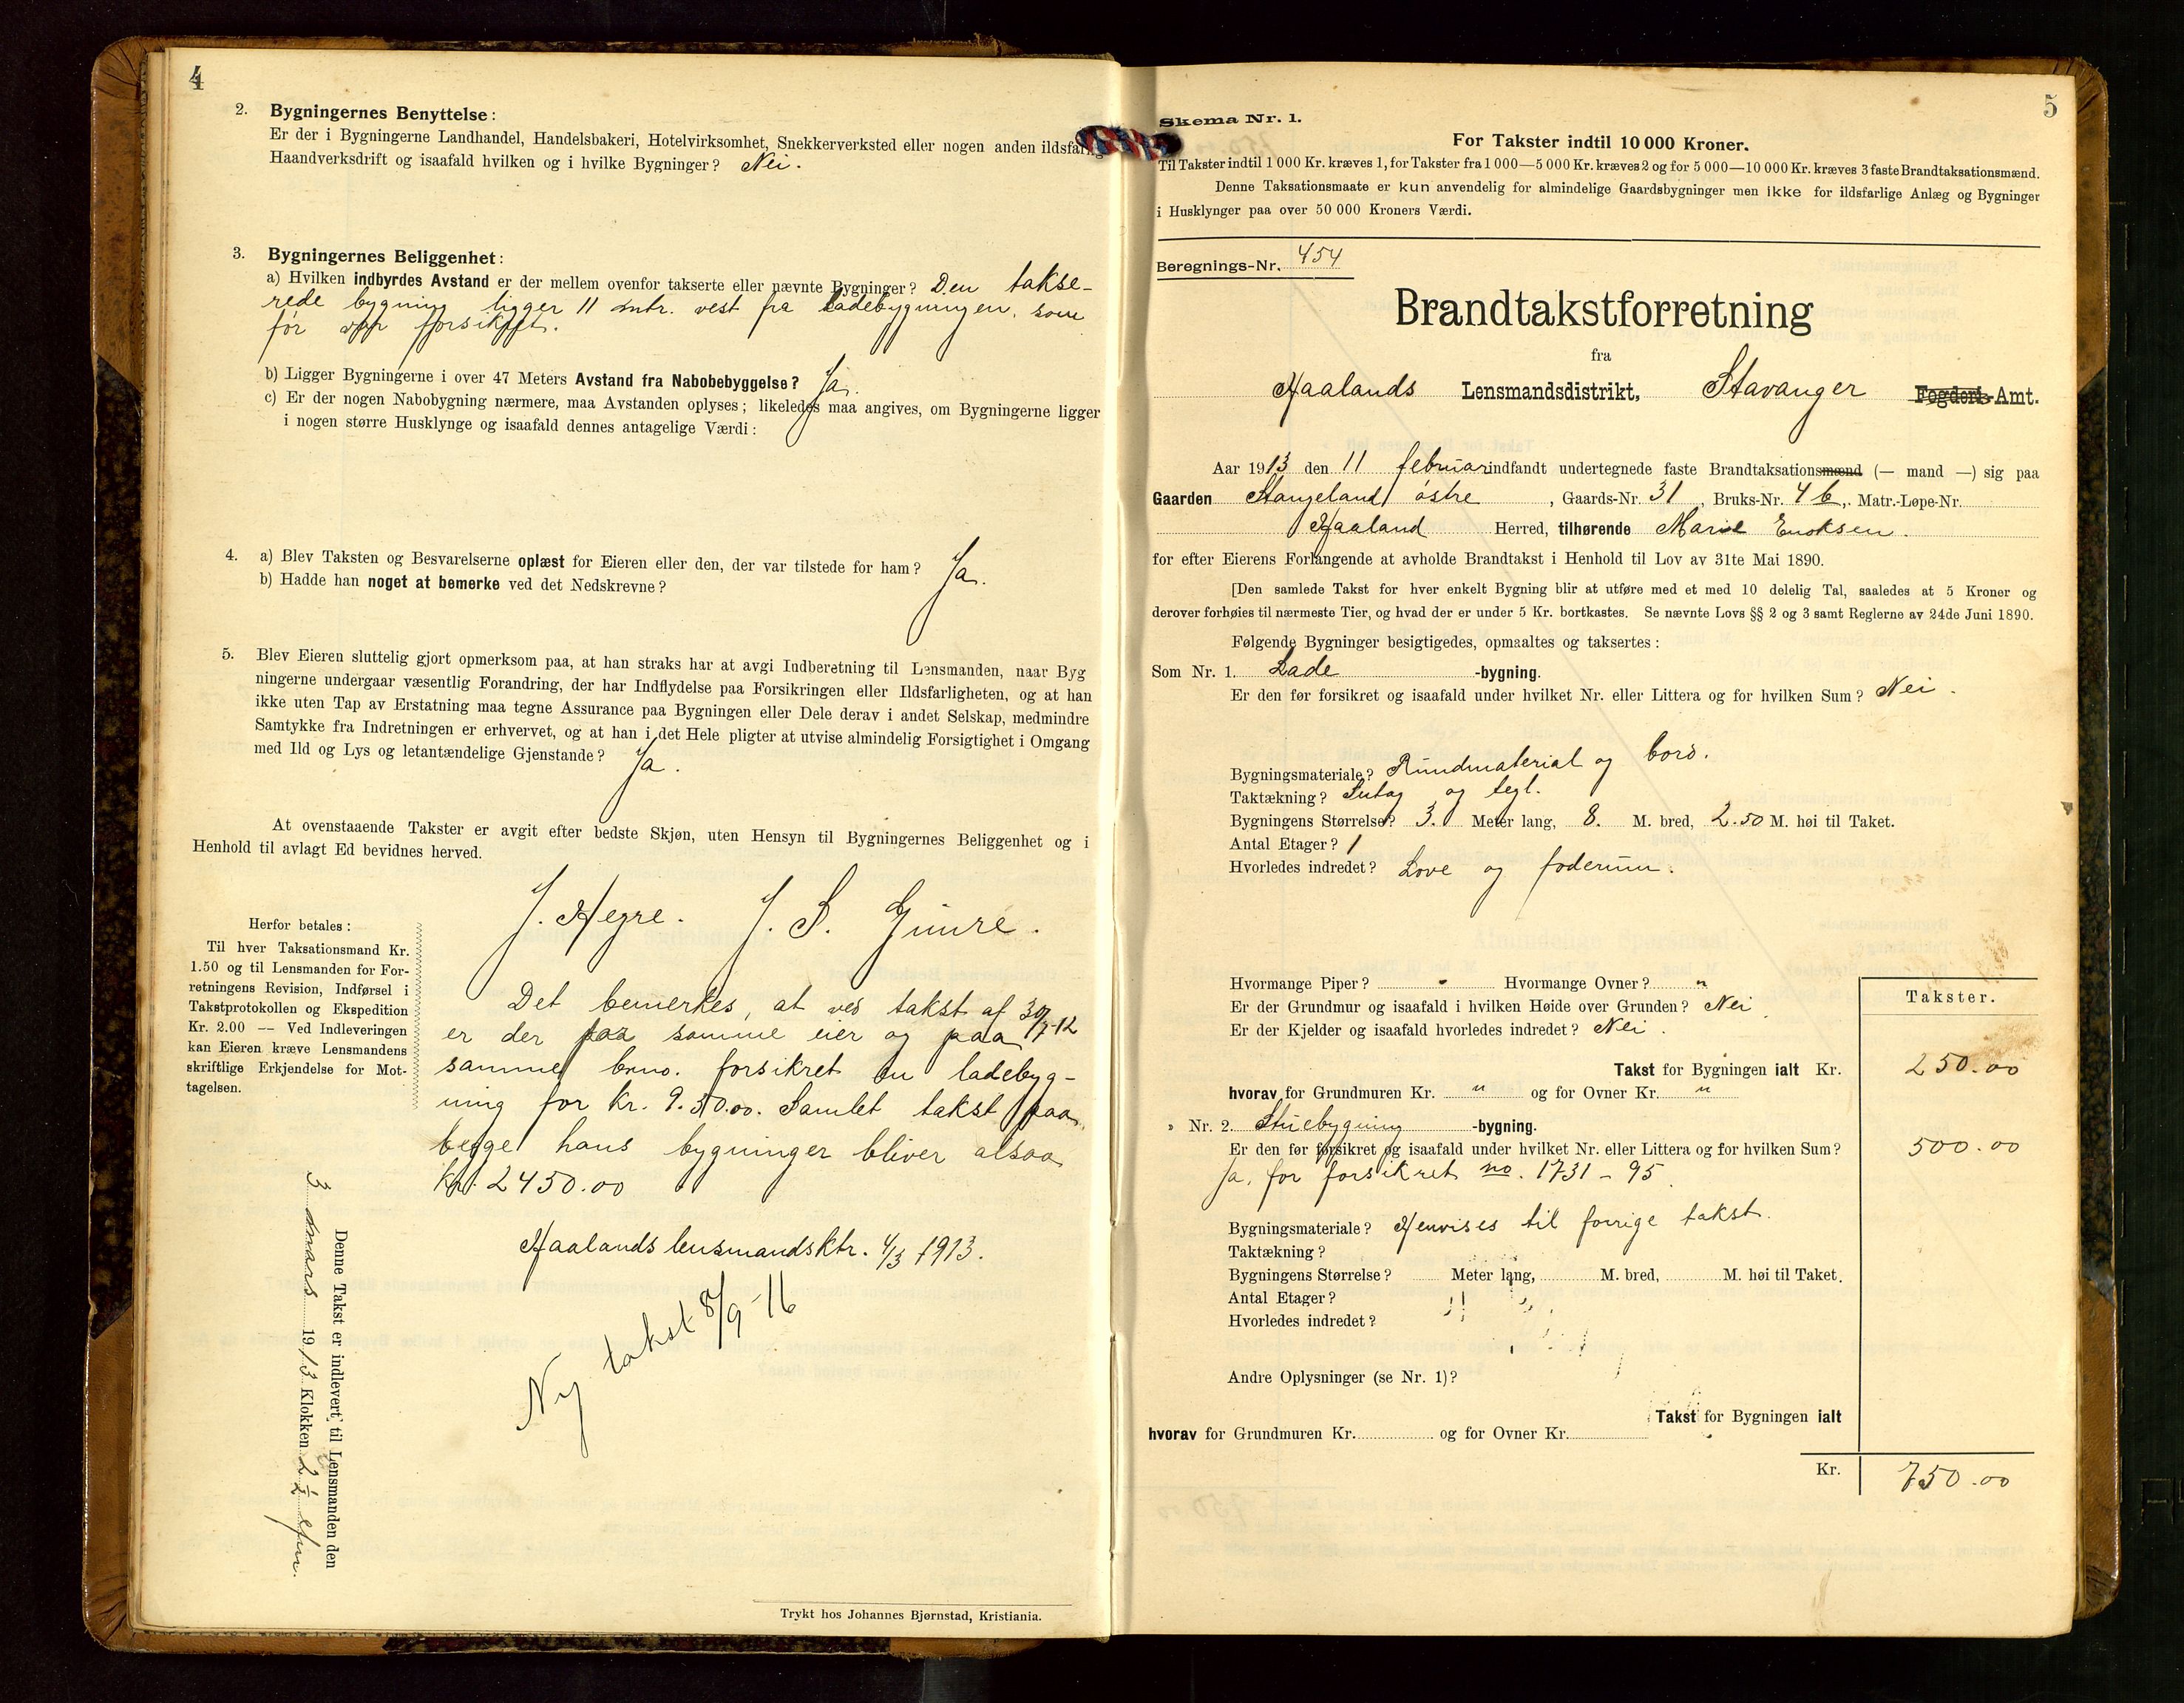 4
2. Bygningernes Benyttelse:
Er der i Bygningerne Landhandel, Handelsbakeri, Hotelvirksomhet, Snekkerverksted eller nogen anden ildsfarlig
Haandverksdrift og isaafald hvilken og i hvilke Bygninger? Nei.
3. Bygningernes Beliggenhet:
a) Hvilken indbyrdes Avstand er der mellem ovenfor takserte eller nævnte Bygninger? Den takse-
rede bygning ligger 11 mtr. vest fra ladebygningen, som
før forsikret.
b) Ligger Bygningerne i over 47 Meters Avstand fra Nabobebyggelse? Ja.
c) Er der nogen Nabobygning nærmere, maa Avstanden oplyses; likeledes maa angives, om Bygningerne ligger
i nogen større Husklynge og isaafald dennes antagelige Værdi:
4. a) Blev Taksten og Besvarelserne oplæst for Eieren eller den, der var tilstede for ham? Ja.
b) Hadde han noget at bemerke ved det Nedskrevne?
5. Blev Eieren sluttelig gjort opmerksom paa, at han straks har at avgi Indberetning til Lensmanden, naar Byg
ningerne undergaar væsentlig Forandring, der har Indflydelse paa Forsikringen eller Ildsfarligheten, og at han
ikke uten Tap av Erstatning maa tegne Assurance paa Bygningen eller Dele derav i andet Selskap, medmindre
Samtykke fra Indretningen er erhvervet, og at han i det Hele pligter at utvise almindelig Forsigtighet i Omgang
med Ild og Lys og letantændelige Gjenstande? Ja.
At ovenstaaende Takster er avgit efter bedste Skjøn, uten Hensyn til Bygningernes Beliggenhet og i
Henhold til avlagt Ed bevidnes herved.
J. Hegre. J. S. Gimre.
Herfor betales:
Til hver Taksationsmand Kr.
1.50 og til Lensmanden for For-
retningens Revision, Indførsel i
Takstprotokollen og Ekspedition
Kr. 2.00 — Ved Indleveringen
kan Eieren kræve Lensmandens
skriftlige Erkjendelse for Mot-
tagelsen.
Det bemerkes, at ved takst af 30/7-12
er der paa samme eier og paa
samme bno. forsikret en ladebyg-
ning for kr. 950.00. Samlet takst paa
begge hans bygninger bliver alsaa
Kr. 2450.00
Haalands lensmandsktr. 4/3 1913.
Ny takst 8/9-16
Denne Takst er indlevert til Lensmanden den
3 mars 1913 Klokken 2½ e/m.
Trykt hos Johannes Bjørnstad, Kristiania.
5
Skema Nr. 1.
For Takster indtil 10 000 Kroner.
Til Takster indtil 1 000 Kr. kræves 1, for Takster fra 1 000—5 000 Kr. kræves 2 og for 5 000—10 000 Kr. kræves 3 faste Brandtaksationsmænd.
Denne Taksationsmaate er kun anvendelig for almindelige Gaardsbygninger men ikke for ildsfarlige Anlæg og Bygninger
i Husklynger paa over 50 000 Kroners Værdi.
Beregnings-Nr. 454
Brandtakstforretning
fra
Haalands Lensmandsdistrikt, Stavanger Fogderi-Amt.
Aar 1913 den 11 februar indfandt undertegnede faste Brandtaksationsmænd (— mand —) sig paa
Gaarden Stangeland østre, Gaards-Nr. 31, Bruks-Nr. 4 b, Matr.-Løpe-Nr.
Haaland Herred, tilhørende Marie Enoksen.
for efter Eierens Forlangende at avholde Brandtakst i Henhold til Lov av 31te Mai 1890.
[Den samlede Takst for hver enkelt Bygning blir at utføre med et med 10 delelig Tal, saaledes at 5 Kroner og
derover forhøies til nærmeste Tier, og hvad der er under 5 Kr. bortkastes. Se nævnte Lovs §§ 2 og 3 samt Reglerne av 24de Juni 1890.
Følgende Bygninger besigtigedes, opmaaltes og taksertes:
Som Nr. 1. Lade -bygning.
Er den før forsikret og isaafald under hvilket Nr. eller Littera og for hvilken Sum? Nei.
Bygningsmateriale? Rundmaterial og bord.
Taktækning? Sutag og tegl.
Bygningens Størrelse? 3. Meter lang, 8. M. bred, 2.50 M. høi til Taket.
Antal Etager? 1
Hvorledes indredet? Love og foderum.
Hvormange Piper? " Hvormange Ovner? "
Er der Grundmur og isaafald i hvilken Høide over Grunden? Nei.
Er der Kjelder og isaafald hvorledes indredet? Nei.
Takster.
Takst for Bygningen ialt Kr. 250.00
hvorav for Grundmuren Kr. " og for Ovner Kr. "
" Nr. 2. Stuebygning -bygning.
Er den før forsikret og isaafald under hvilket Nr. eller Littera og for hvilken Sum? 500.00
Ja, før forsikret no. 1731 - 95.
Bygningsmateriale? Henvises til forrige takst.
Taktækning?
Bygningens Størrelse? Meter lang, M. bred, M. høi til Taket.
Antal Etager?
Hvorledes indredet?
Andre Oplysninger (se Nr. 1)?
Takst for Bygningen ialt
hvorav for Grundmuren Kr. og for Ovner Kr.
Kr. 750.00